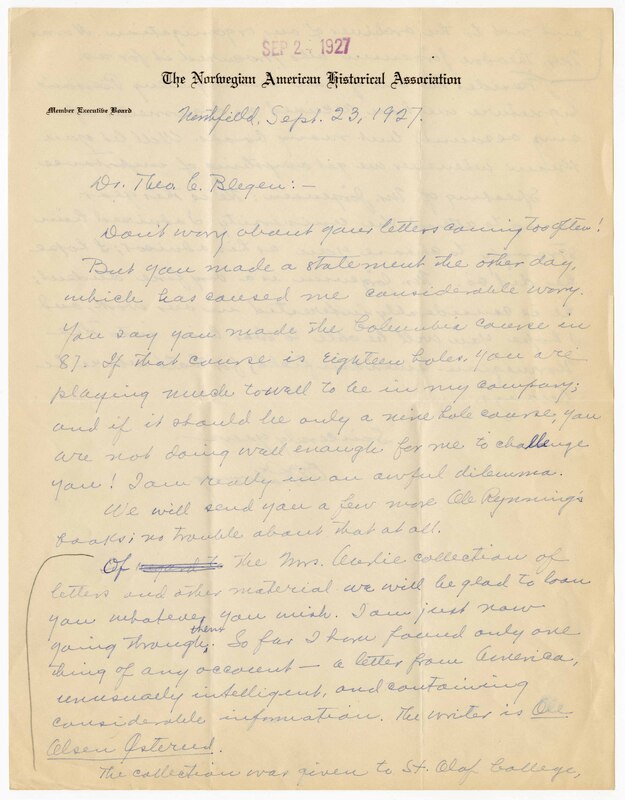 SEP 2 1927
The Norwegian American Historical Association
Member Executive Board
Northfield, Sept. 23, 1927.
Dr. Theo. C. Blegen:—
Don't worry about your letters coming too often!
But you made a statement the other day,
which has caused me considerable worry.
You say you made the Columbia course in
87. If that course is eighteen holes, you are
playing much to well to be in my company;
and if it should be only a nine hole course, you
are not doing well enough for me to challenge
you! I am really in an awful dilemma.
We will send you a few more Ole Rynning's
books; no trouble about that at all.
Of the Mrs. Aurlie collection of
letters and other material we will be glad to loan
you whatever you wish. I am just now
going through them. So far I have found only one
thing of any account — a letter from America,
unusually intelligent, and containing
considerable information. The writer is Ole
Olsen Østerud.
The collection was given to St. Olaf College,